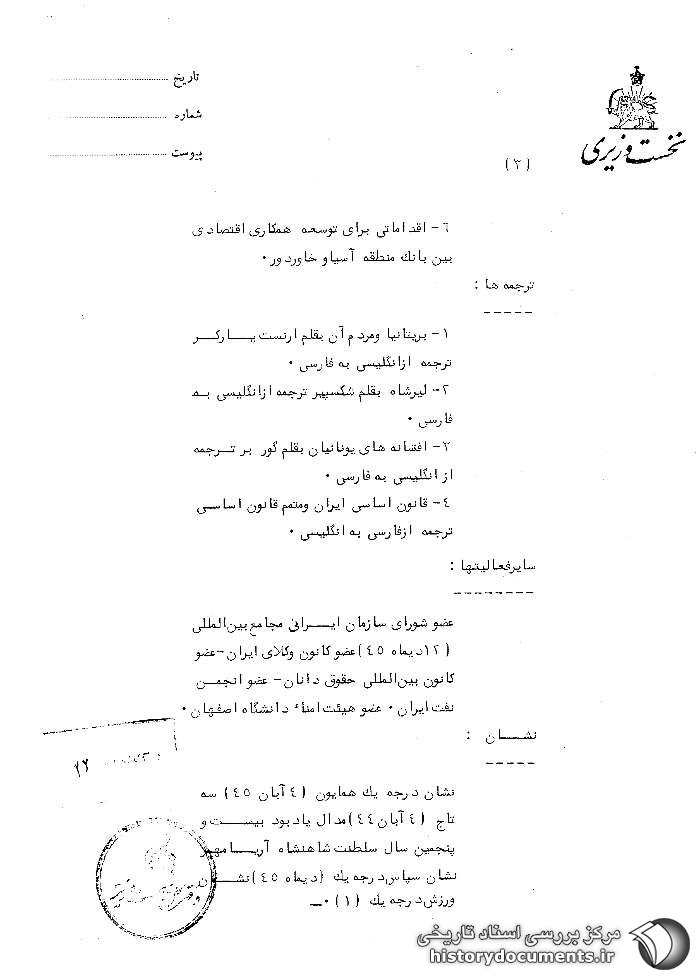 تاریخ
شماره
پیوست
نخست وزیری
(۲)
٦- اقداماتی برای توسعه همکاری اقتصادی
بین بانك منطقه آسیاو خاوردور٠
ترجمه ها :
۱- بریتانیا ومردم آن بقلم ارنست پـــارکــر
ترجمه ازانگلیسی به فارسی ٠
۲- لیرشاه بقلم شکسپیر ترجمه ازانگلیسی بـه
فارسی ٠
۳- افشانه های یونانیان بقلم گور بر تــرجمه
از انگلیسی به فارسی ٠
٤- قانون اساسی ایران ومتمم قانون اساســی
ترجمه ازفارسی به انگلیسی ٠
سایرفعالیتها :
عضو شورای سازمان ایــرانی مجامع بین‌المللی
(۱۲دیماه ٤٥)عضو کانون وکلای ایران-عضو
کانون بین‌المللی حقوق دانان- عضو انجمــن
نفت ایران ٠ عضو هیئت امناء دانشگاه اصفهان ٠
نشــان :
نشان درجه یك همایون (٤ آبان ٤٥) سه
تاج (٤ آبان ٤٤)مدال یادبود بیســت و
پنجمین سال سلطنت شاهنشاه آریــا مهر
نشان سپاس درجه یك (دیماه ٤٥)نشــ
ورزش درجه یك (۱) ٠ــ
مرکز بررسی اسناد تاریخی
historydocuments.ir